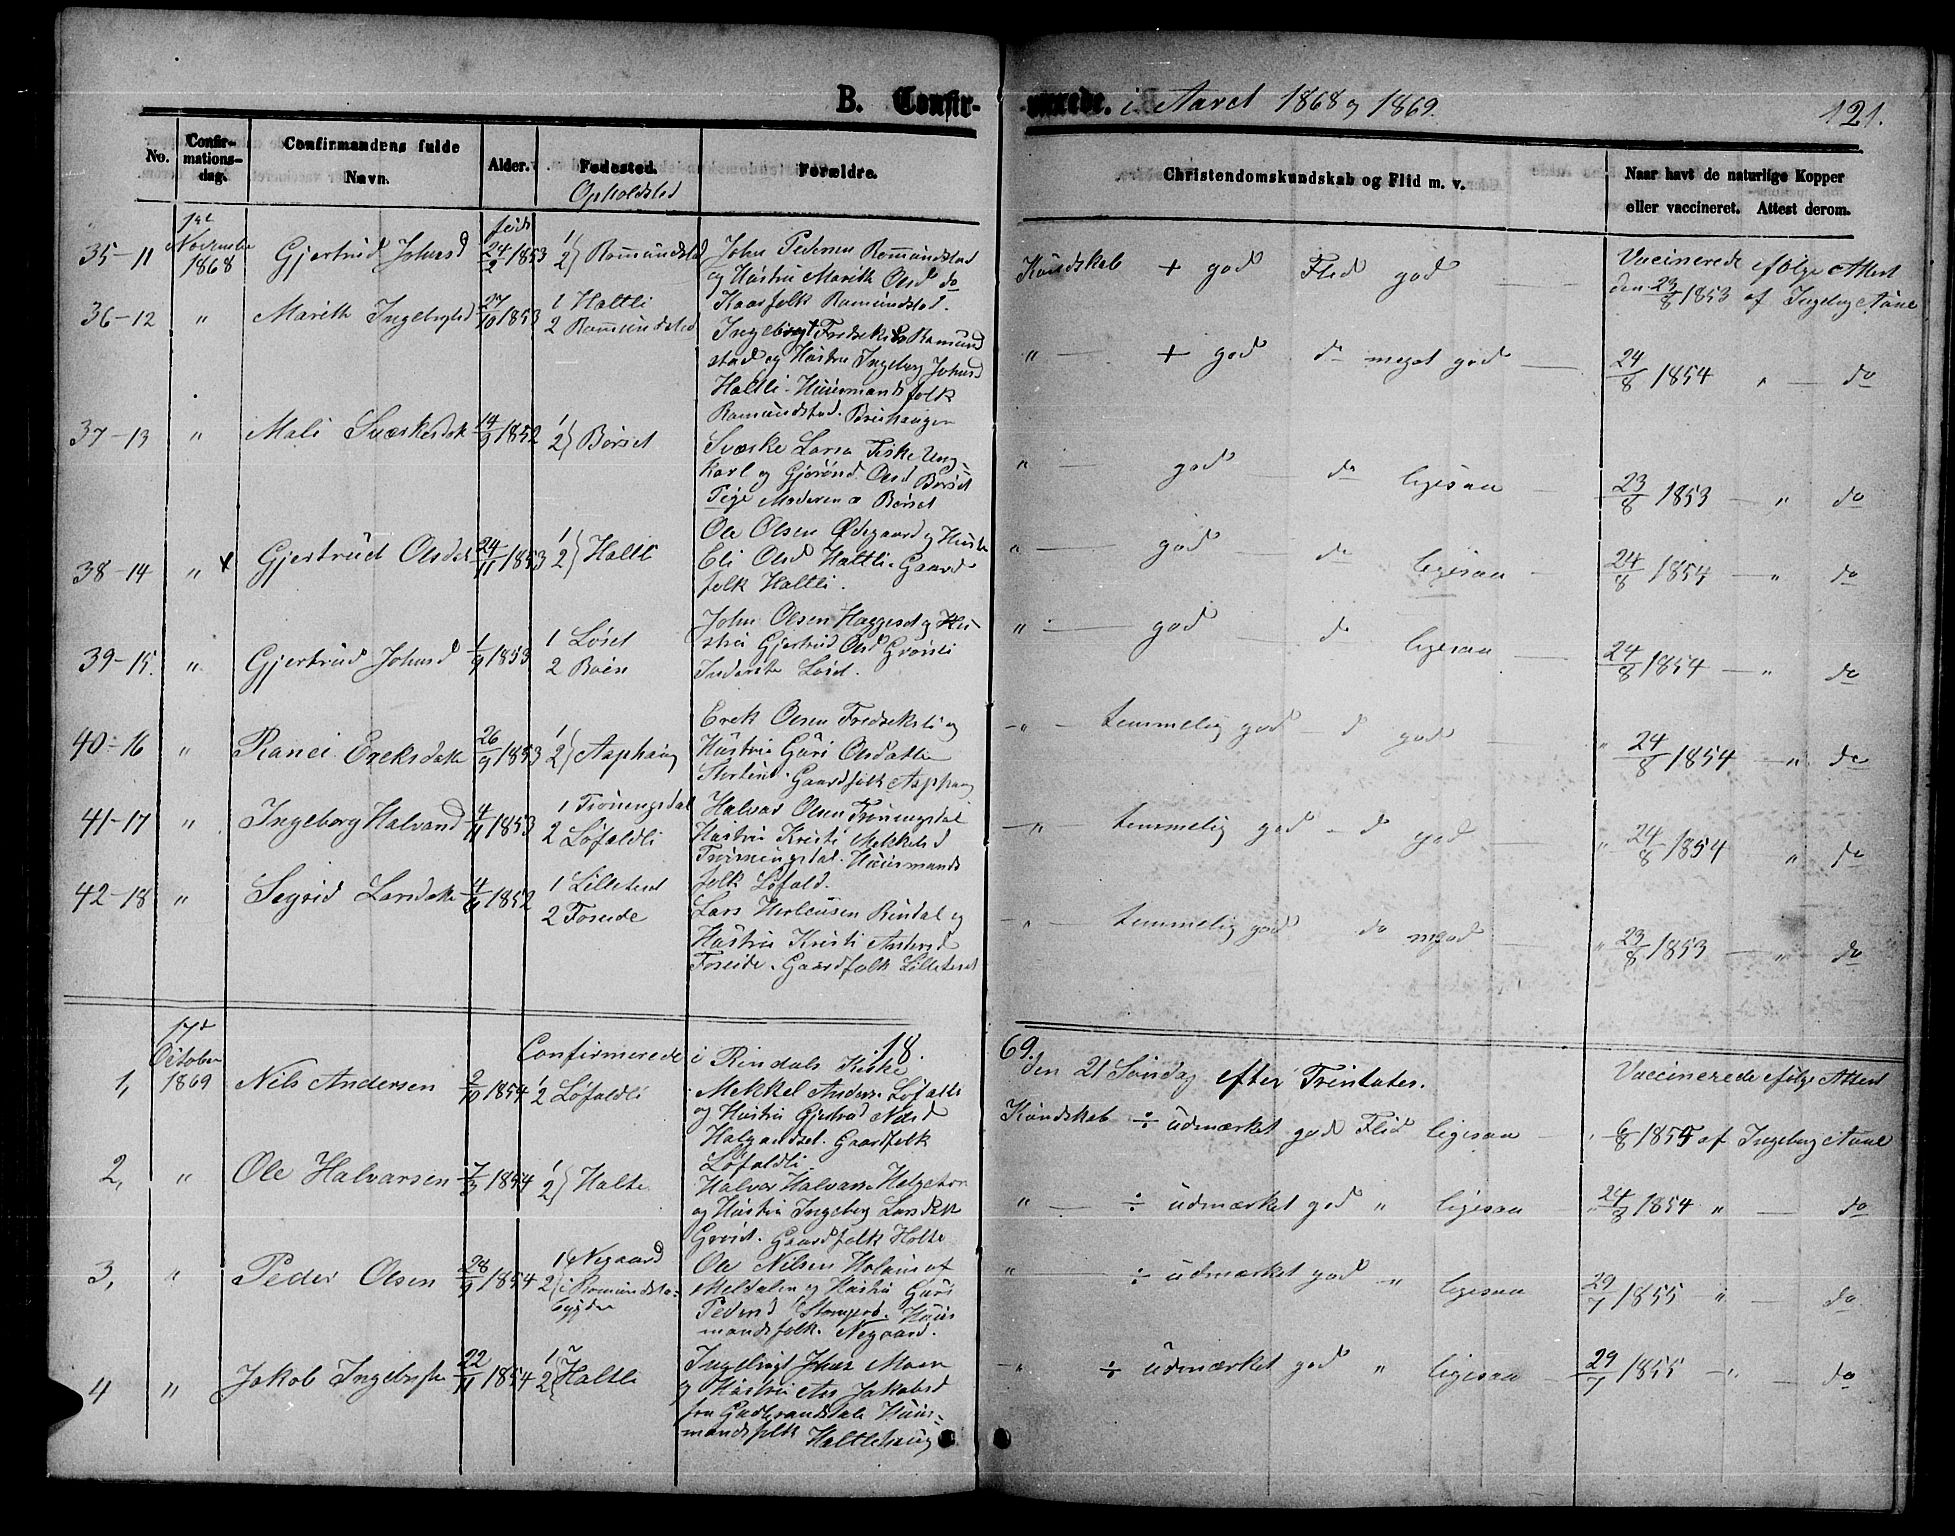 B. Confir-
-merede. i Aaret 1868 og 1869.
121.
No.
Confir-
mations-
dag.
Confirmandens fulde
Navn.
Alder.
Fødested.
Opholdsted
Forældre.
Christendomskundskab og Flid m. v.
Naar havt de naturlige Kopper
eller vaccineret. Attest derom.
35-11
1ste
November
1868
Gjertrud Johnsd
født
24/2 1853
1
2} Romundstad
John Pedersen Romundstad
og Hustru Marith Olsd do
Kaarfolk Romundstad.
Kundskab + god Flid god
Vaccinerede ifølge Attest
den 23/8 1853 af Ingeborg Aune
36-12 " Marith Ingebrigtsd 27/10 1853
1 Haltli
2 Romundstad
Ingebrigt Fredriks Romund
stad og Hustru Ingeborg Johnsd
Haltli. Huusmandsfolk
Romundstad.
" + god do meget god
24/8 1854 " do
37-13 " Mali 14/9 1852
1
2} Børset
Larsa Fiske Ung-
karl og Olsd Børset
Pige Moderen a Børset
" god do ligesaa
23/8 1853 " do
38-14 " x Gjertrud Olsdat 24/11 1853
1
2} Haltli
Ole Olsen Ødegaard og Hustru
Eli Olsd Haltli. Gaard
folk Haltli.
" god do ligesaa
24/8 1854 " do
39-15. " Gjertrud Johnsd 1/9 1853
1 Løset
2 Boen
John Olsen og Hu-
stru Gjertrud Olsd Grønli
Inderste Løset.
" god do ligesaa
24/8 1854 " do
40-16 " Ranei Ereksdatr 26/9 1853
1
2} Asphaug
Erek Olsen Fredseksli og
Hustru Guri Olsdatter
Gaardfolk Asphaug
" temmelig god d god
" 24/8 1854 " do
41-17 " Ingeborg Halvarsd 4/11 1853
1 Trøningsdal
2 Løfaldli
Halvar Olsen Trøningsdal
Hustru Kristi Mekkelsd
Trøningsdal. Huusmands
folk Løfald.
" temmelig god d god
" 24/8 1854 " do
42-18 " Segrid Larsdatr 1852
1 Lilleteset
2 Foseide
Lars Rindal og
Hustru Kristi Andersd
Foseide. Gaardfolk Lilleteset
" temmelig god do mgod
" 23/8 1853 " do
1869.
17de
October
1869
Confirmerede i Rindals Kirke
den 21 Søndag efter Trinitatis.
Vaccinerede ifølge Attest
1, Nils Andersen 2/10 1854
1
2 Løfaldli
Mekkel Anders. Løfaldli
og Hustru Gjertrud Nilsd
Halgandset. Gaardfolk
Løfaldli.
Kundskab ÷ udmærket god Flid ligesaa
6/8 1855 af Ingeborg Aune
2, " Ole Halvarsen 7/3 1854
1
2} Halte
Halvor Halvars. Helgeton
og Hustru Ingeborg Larsdatr
Gaardfolk Holte
" ÷ udmærket god " ligesaa
" 24/8 1854 " do
3, " Peder Olsen 28/9 1854
1 Negaard
2 i Romundsta-
bygden
Ole Nilsen
Meldalen og Hustru Guri
Pedersd Huus
mandsfolk. Negaard.
" ÷ udmærket god " ligesaa
29/7 1855 " do
4 " Jakob Ingebrigts 22/11 1854
1
2} Haltli
Ingebrigt Moen
og Hustru Jakobsd
fra Gudbrandsdalen Huus-
mandsfolk
Haltlihaug
" ÷ udmærket god " ligesaa
29/7 1855 " do